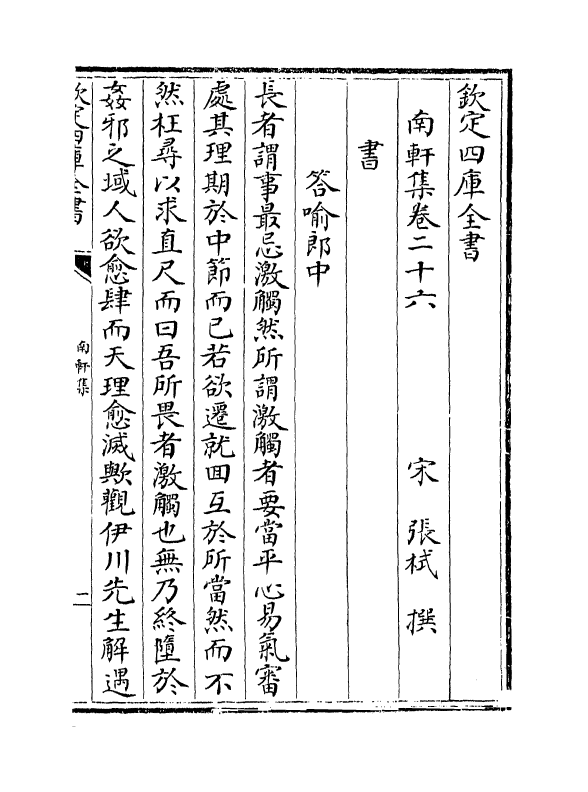 欽定四庫全書
南軒集卷二十六　　　　宋　張栻　撰
書
答喻郎中
長者謂事最忌激觸然所謂激觸者要當平心易氣審
處其理期於中節而已若欲遷就回互於所當然而不
然枉尋以求直尺而曰吾所畏者激觸也無乃終墮於
姦邪之域人欲愈肆而天理愈滅歟觀伊川先生解遇
欽定四庫全書
南軒集
一